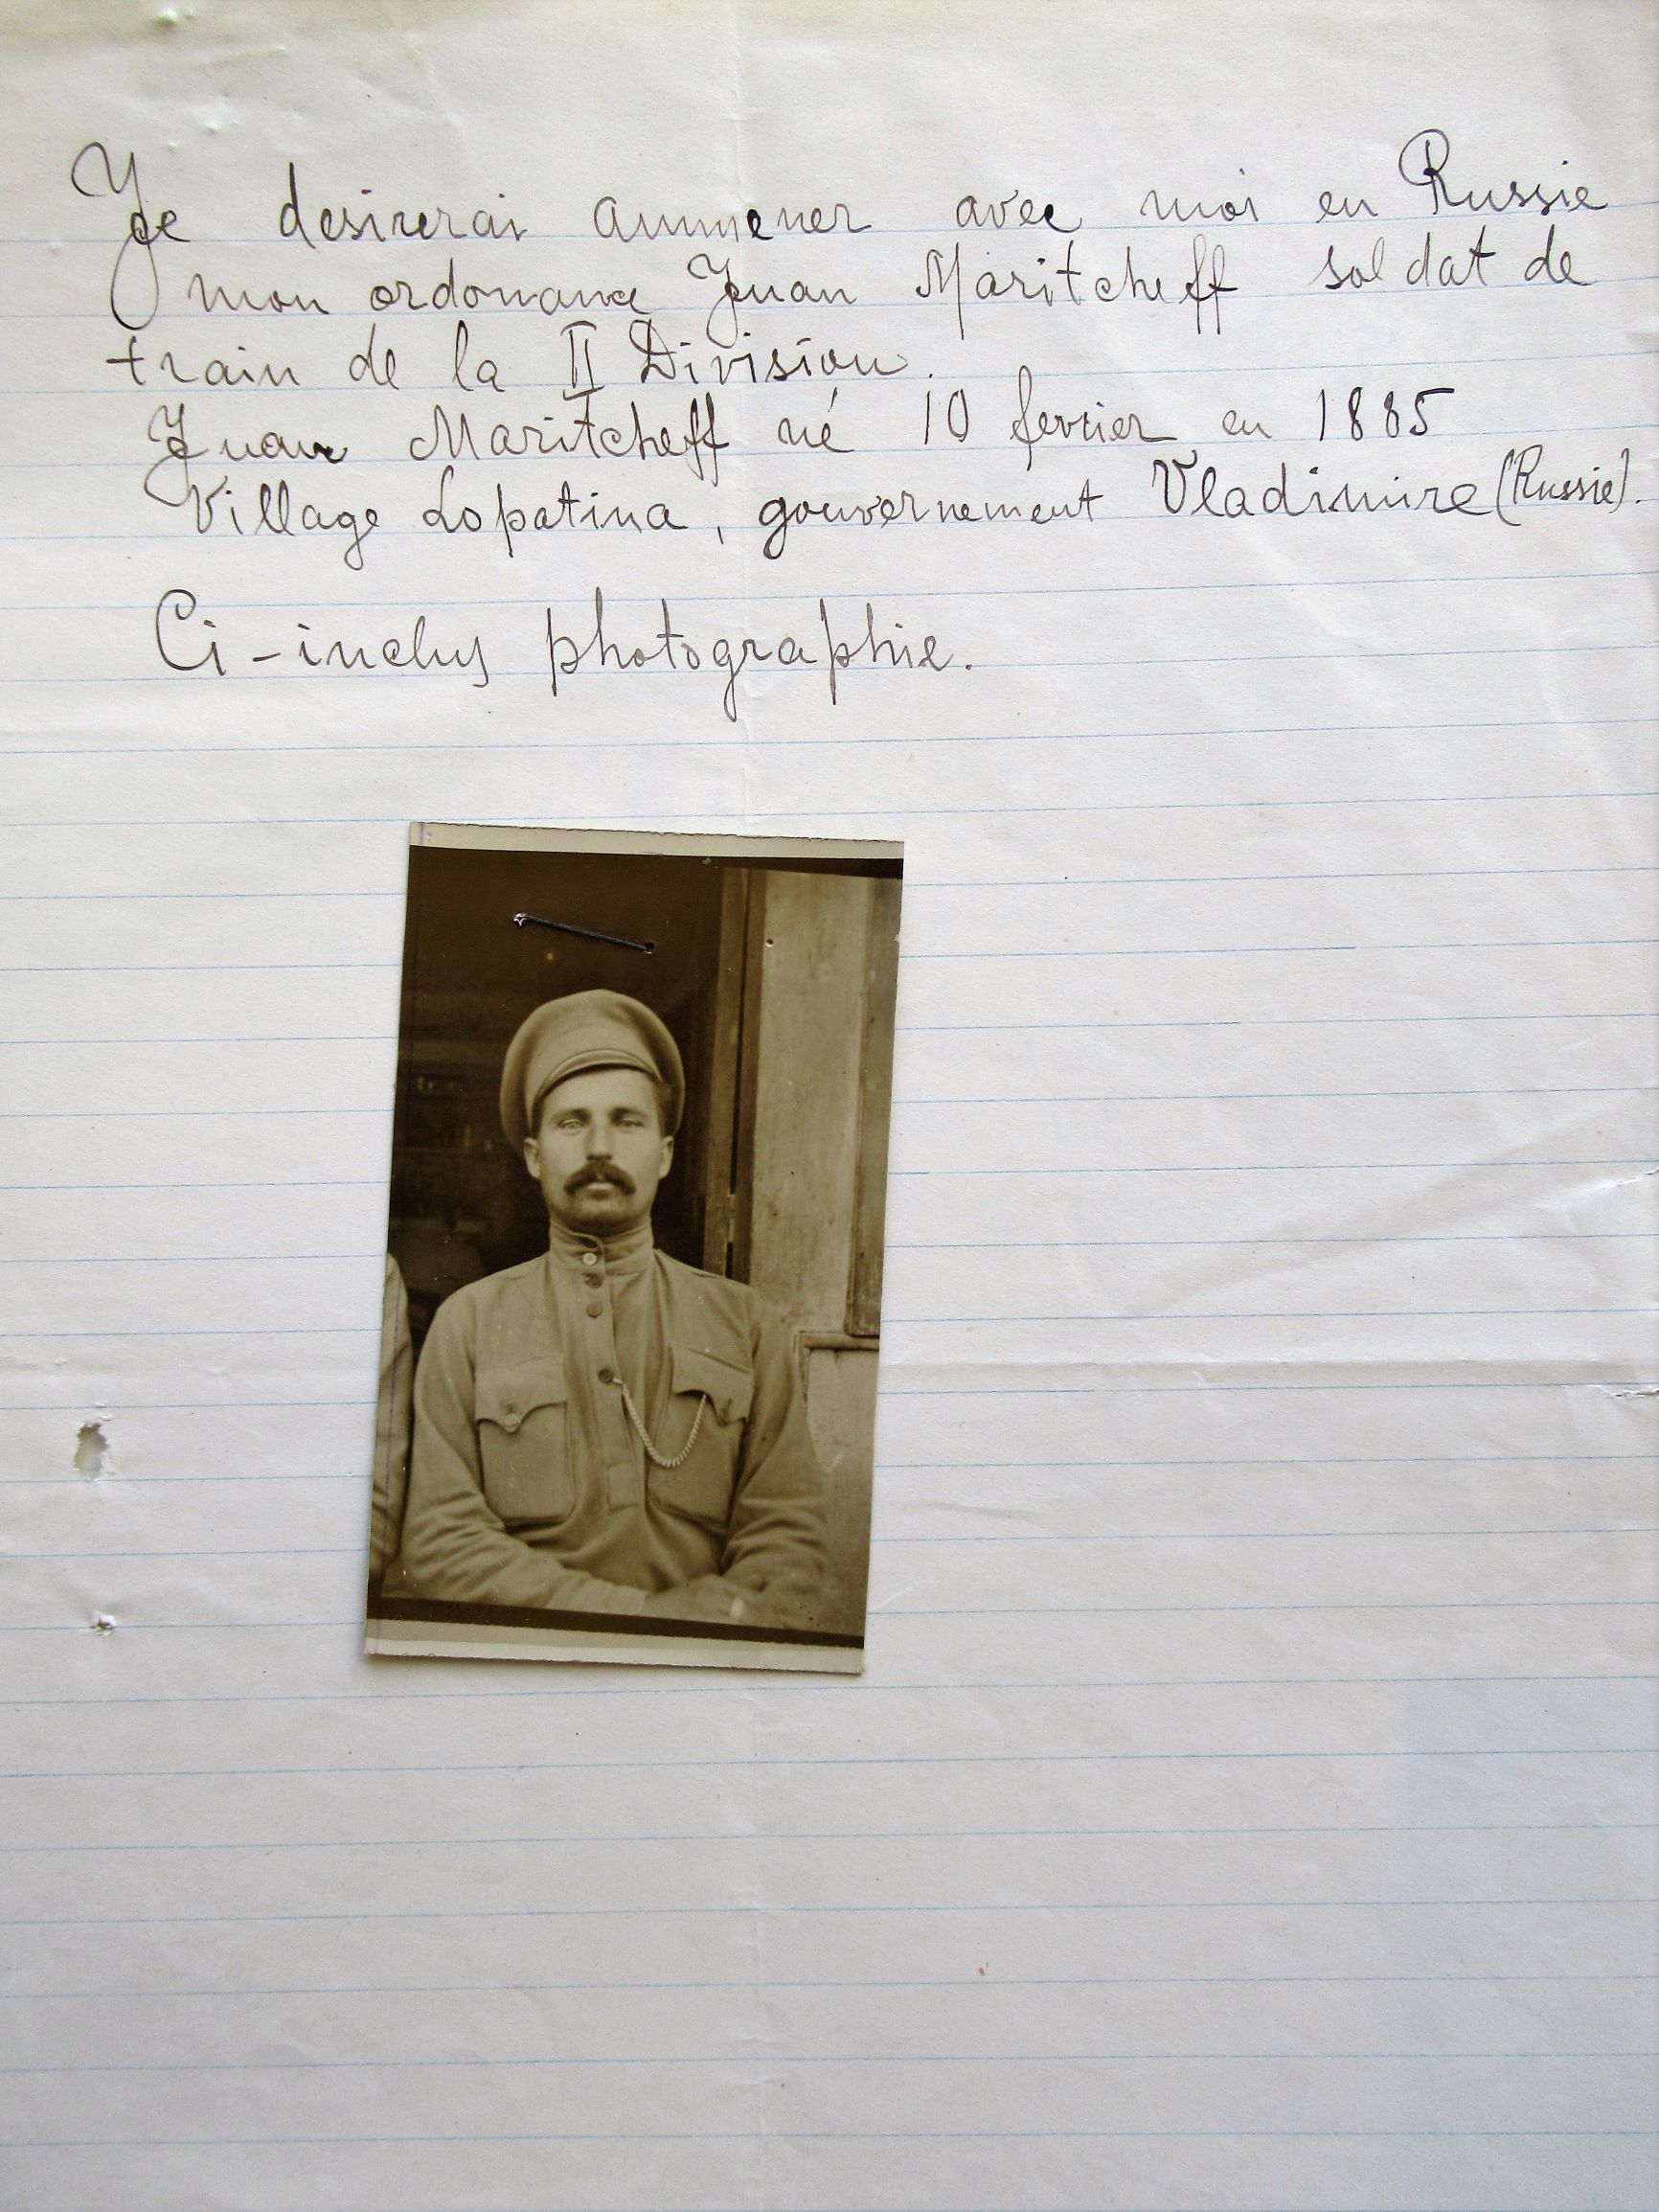 Je desirerai ammener avec moi en Russie
mon ordonance Jvan Maritcheff soldat de
train de la II Division.
Jvan Maritcheff né 10 fevrier en 1885
Village Lopatina, gouvernement Vladimire (Russie).
Ci-inclus photographie.